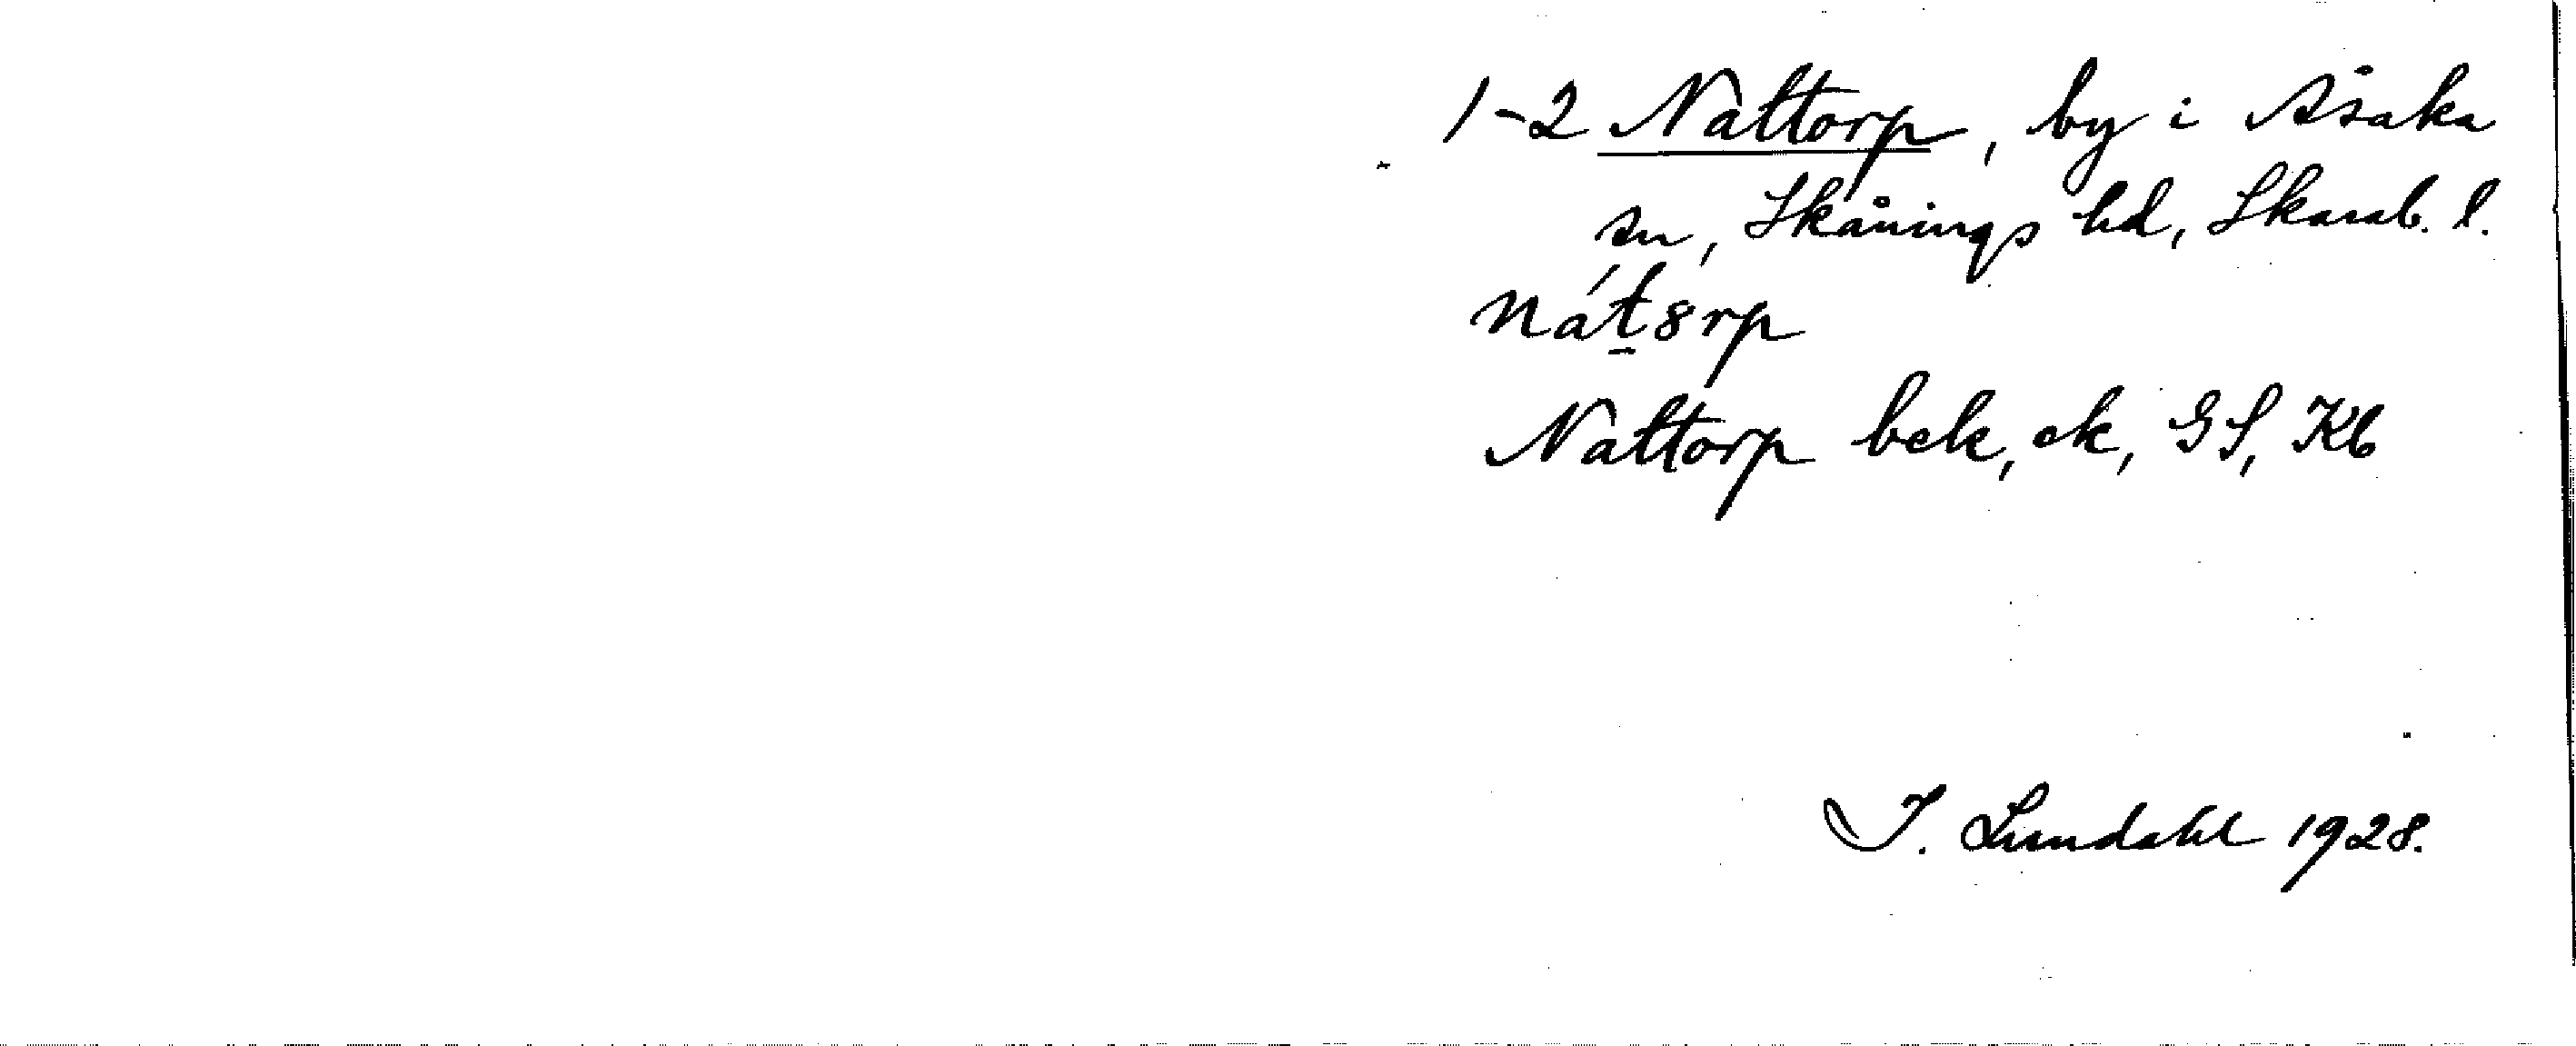 1-2 Nattorp, by i Åsaka
sn, Skånings hd, Skarab. l.
nát8rp
Nattorp bek, ek, GS, Kb
I. Lundahl 1928.